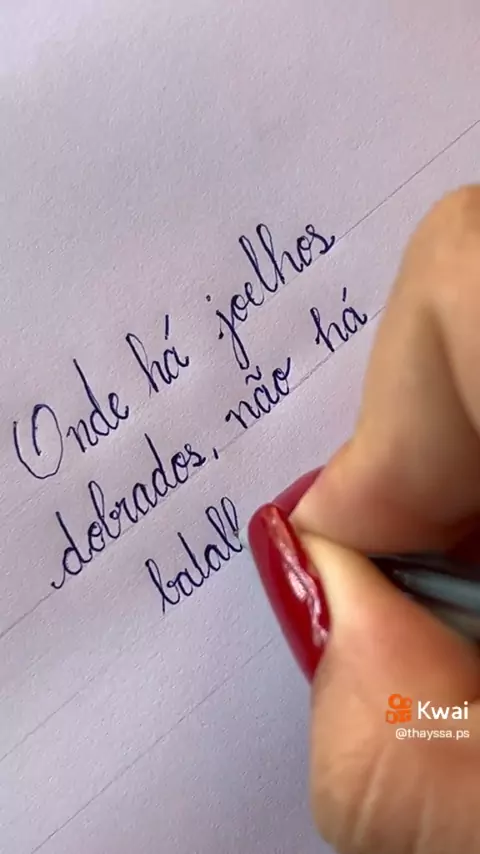 Onde há joelhos
dobrados, não há
batall
Kwai
@thayssa.ps